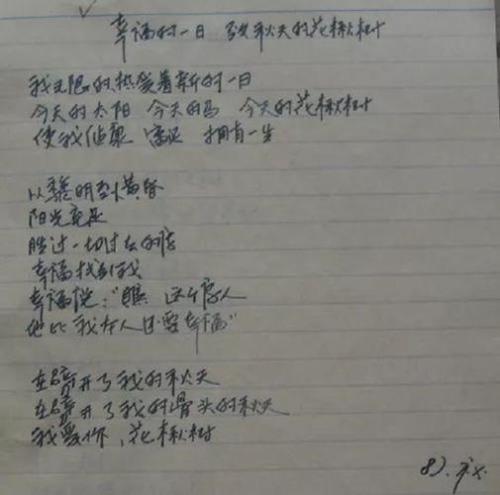 幸福的一日 致秋天的花楸树
我无限的热爱着新的一日
今天的太阳 今天的马 今天的花楸树
使我健康 富足 拥有一生
从黎明到黄昏
阳光充足
胜过一切过去的诗
幸福找到我
幸福说：“瞧 这个诗人
他比我本人还要幸福”
在劈开了我的秋天
在劈开了我的骨头的秋天
我爱你，花楸树
87.